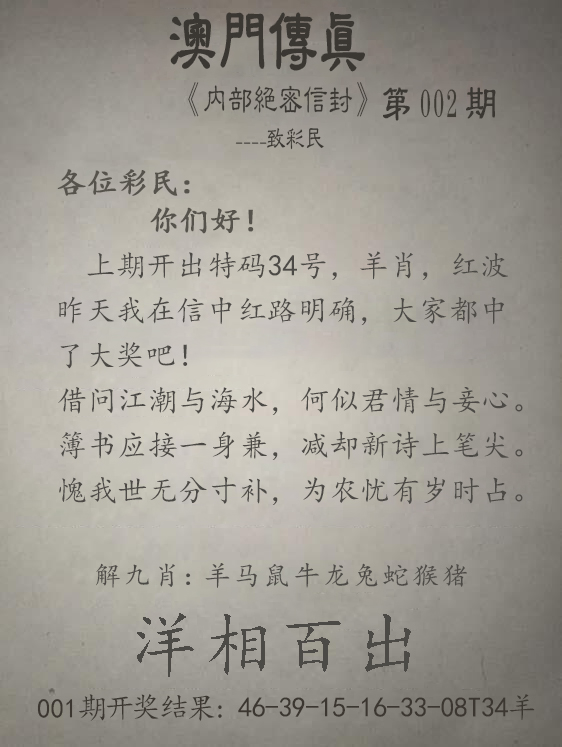 澳門傳真
《内部絕密信封》第002期
----致彩民
各位彩民：
你们好！
上期开出特码34号，羊肖，红波
昨天我在信中红路明确，大家都中
了大奖吧！
借问江潮与海水，何似君情与妾心。
簿书应接一身兼，减却新诗上笔尖。
愧我世无分寸补，为农忧有岁时占。
解九肖：羊马鼠牛龙兔蛇猴猪
洋相百出
001期开奖结果：46-39-15-16-33-08T34羊